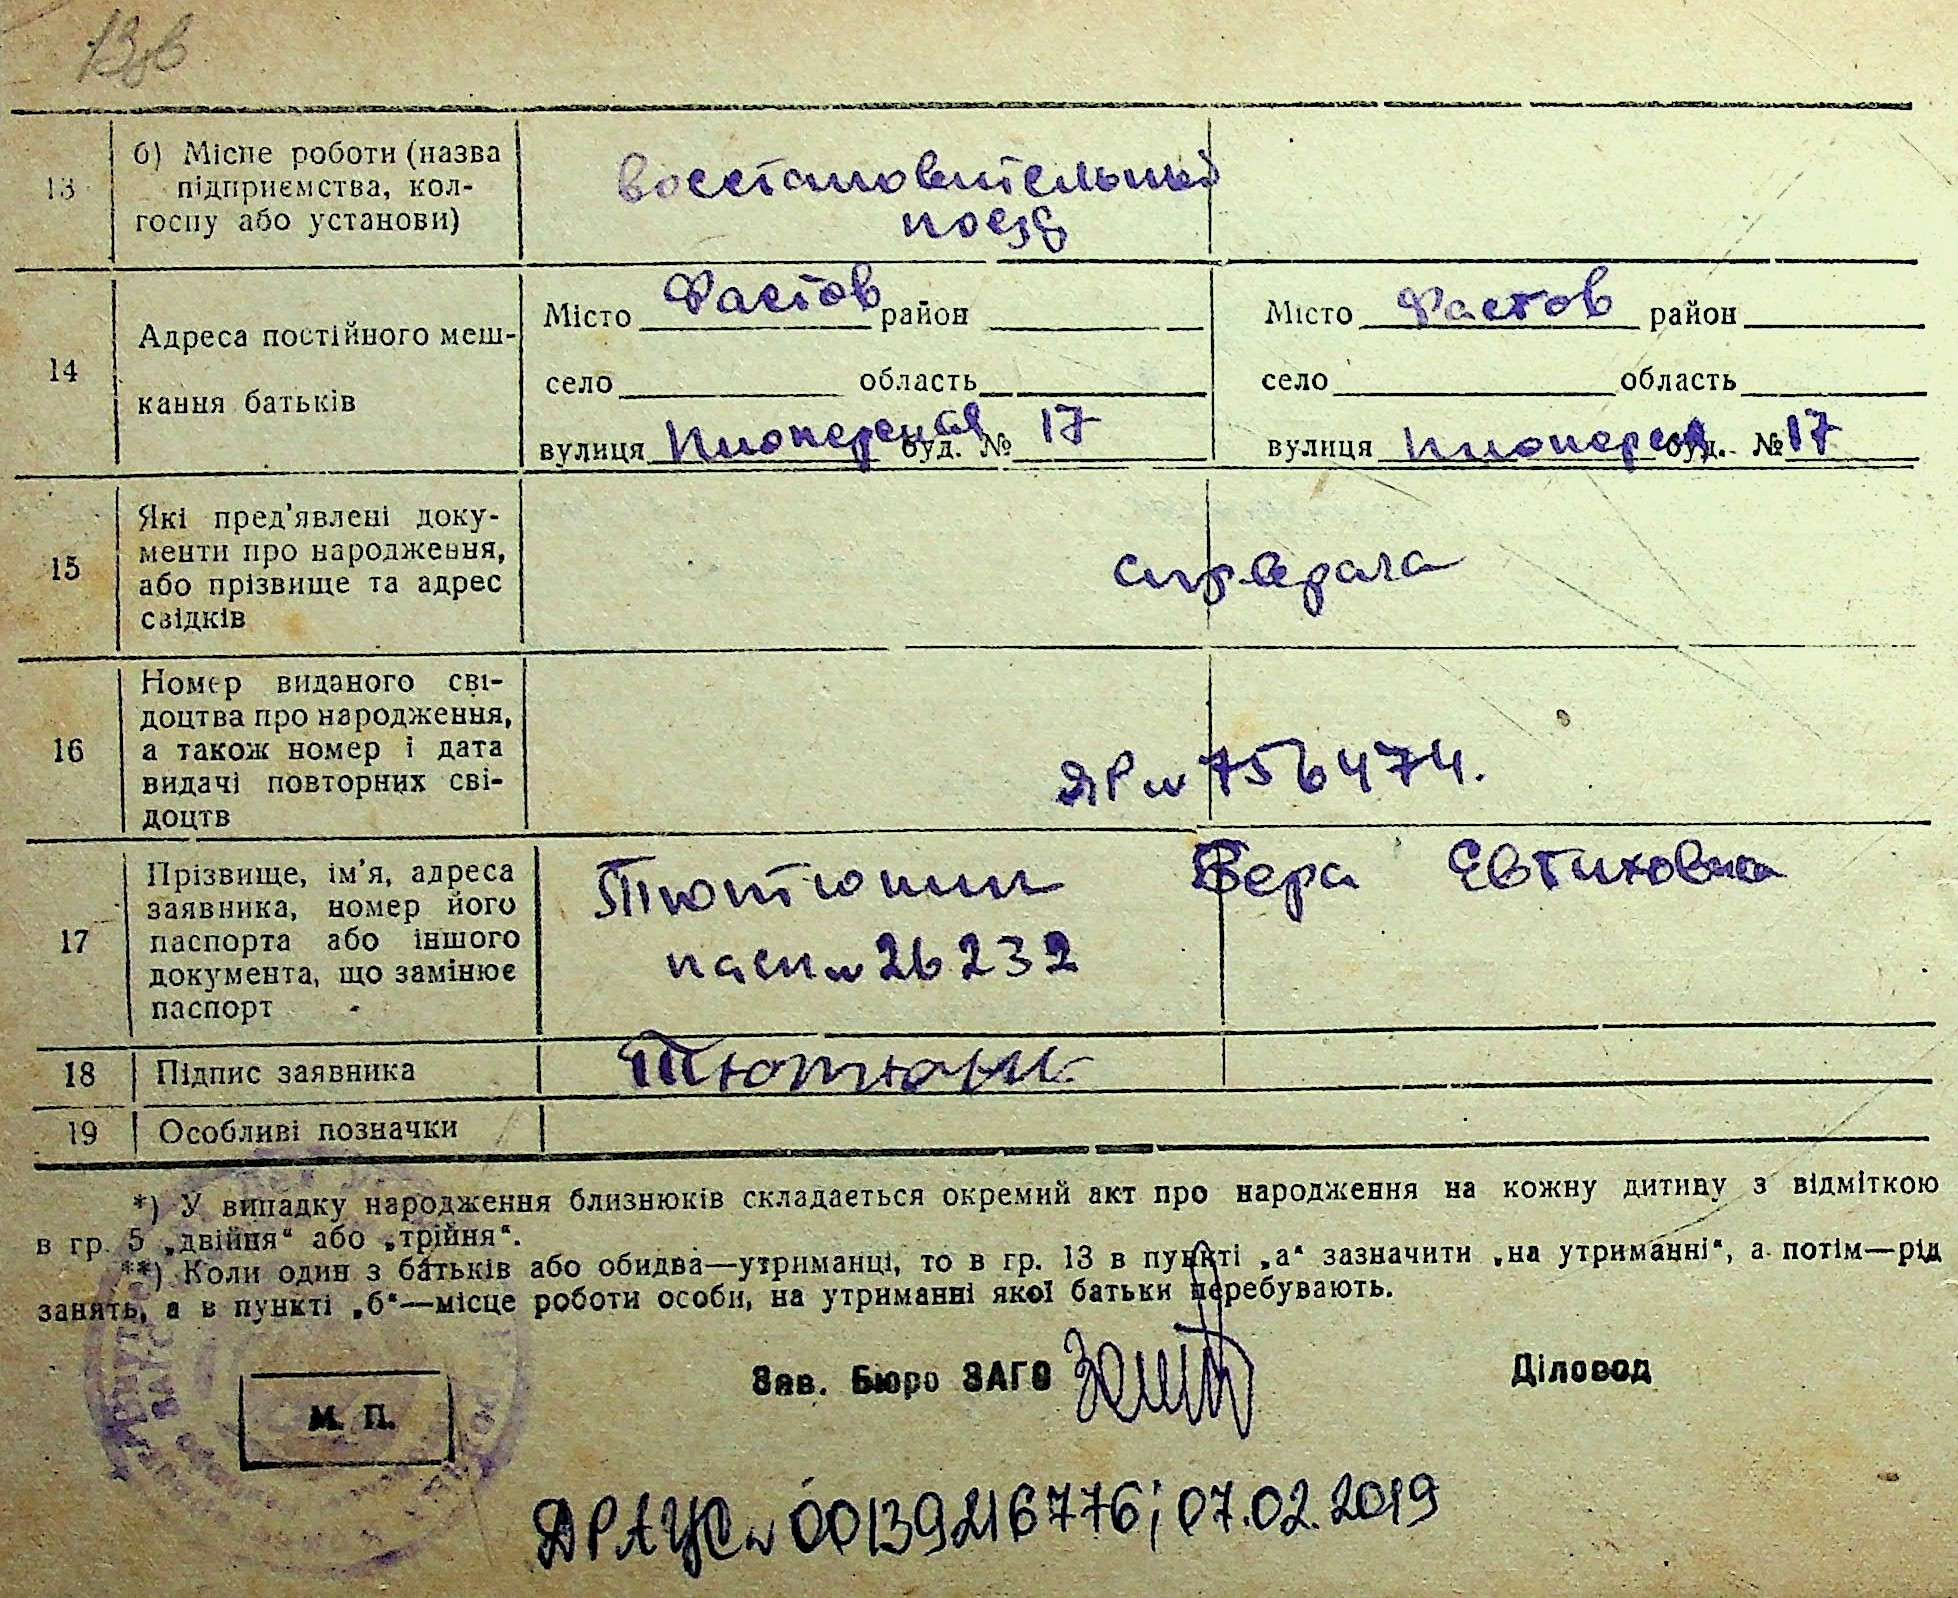 13
б) Місце роботи (назва
підприємства, кол-
госпу або установи)
восстановительный
поезд
14
Адреса постійного меш-
кання батьків
Місто Фастов район
село область
вулиця Пионерская буд. № 17
Місто Фастов район
село область
вулиця Пионерск буд. № 17
15
Які пред'явлені доку-
менти про народження,
або прізвище та адрес
свідків
спр врача
16
Номер виданого сві-
доцтва про народження,
а також номер і дата
видачі повторних сві-
доцтв
ЯР № 756474.
17
Прізвище, ім'я, адреса
заявника, номер його
паспорта або іншого
документа, що замінює
паспорт
Тютюнник Вера Евтиховна
пасп № 26232
18
Підпис заявника
19
Особливі позначки
*) У випадку народження близнюків складається окремий акт про народження на кожну дитину з відміткою
в гр. 5 „двійня“ або „трійня“.
**) Коли один з батьків або обидва—утриманці, то в гр. 13 в пункті „а“ зазначити „на утриманні“, а потім—рід
занять, а в пункті „б“—місце роботи особи, на утриманні якої батьки перебувають.
Зав. Бюро ЗАГС
Діловод
М. П.
ДРАЦС № 00139216776; 07.02.2019